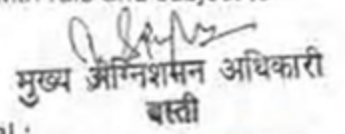 मुख्य अग्निशमन अधिकारी
बस्ती